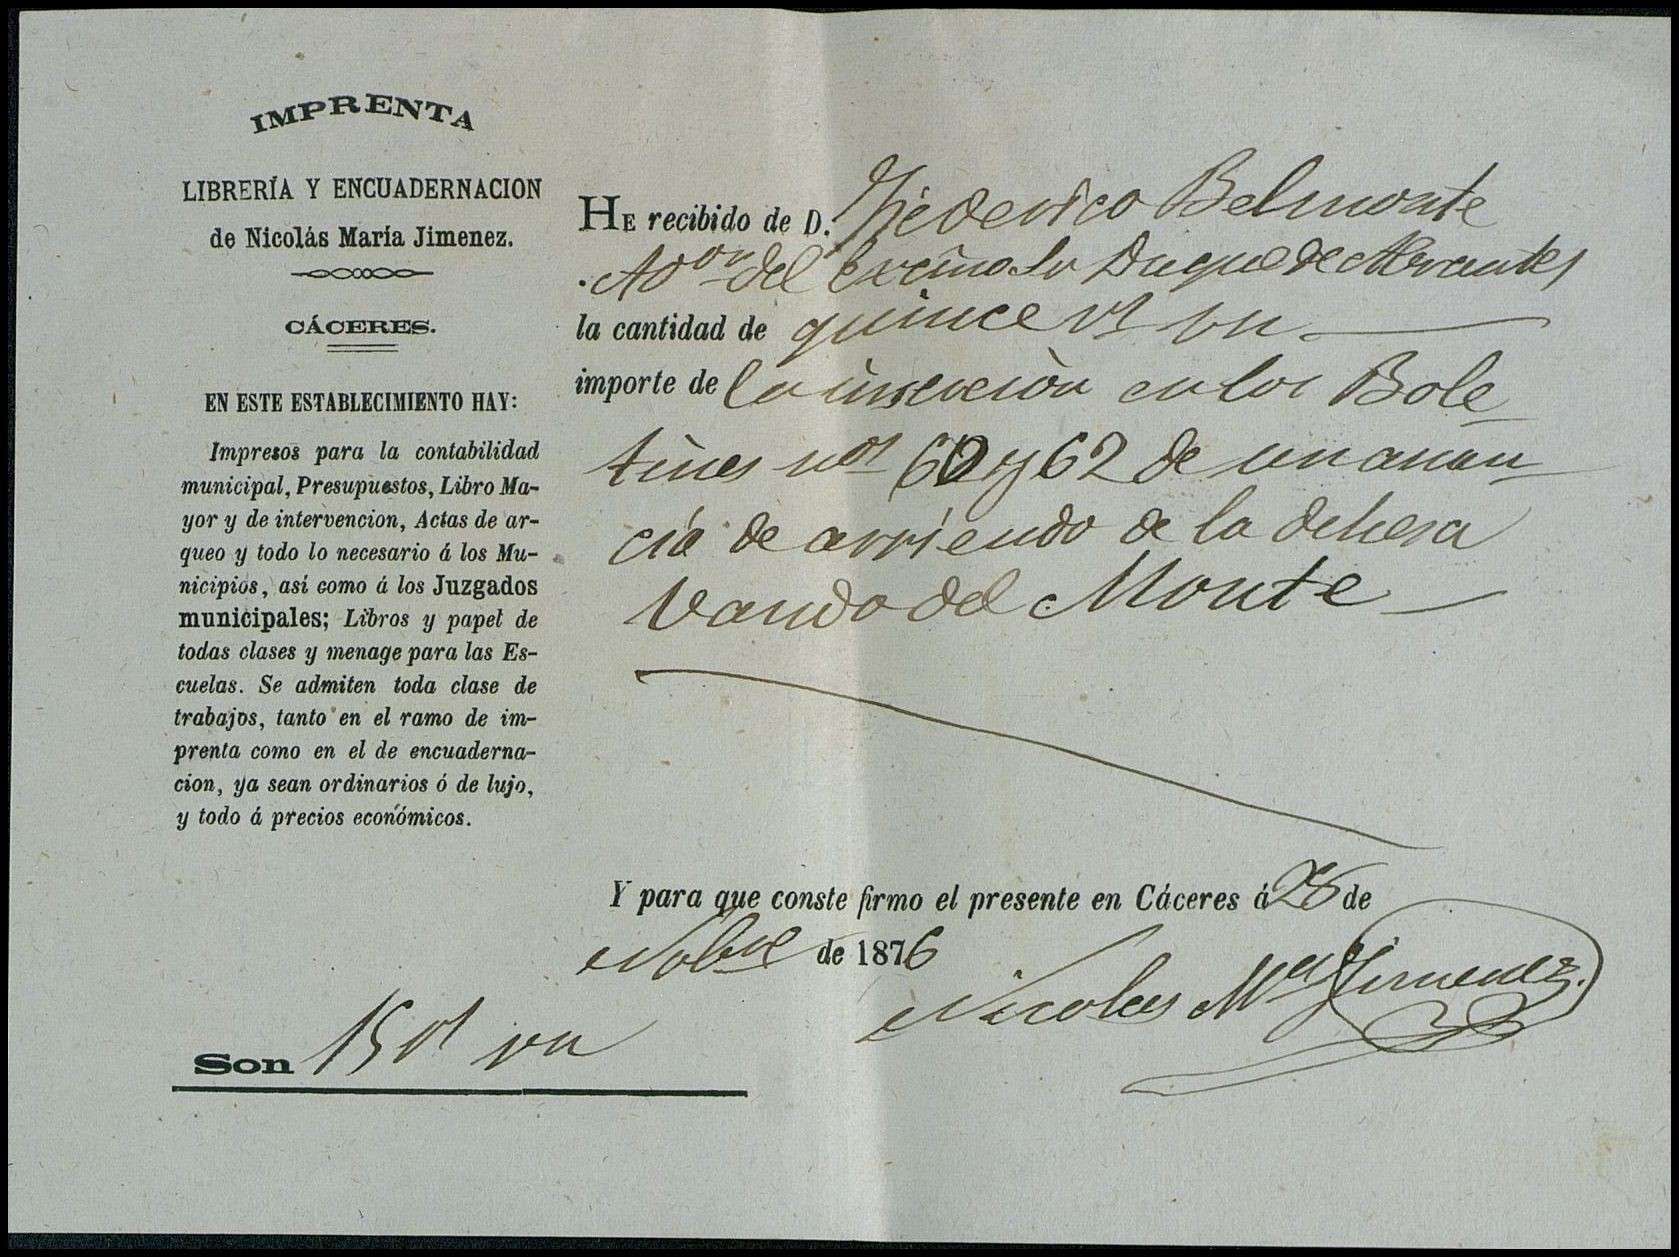 IMPRENTA
LIBRERÍA Y ENCUADERNACION
de Nicolás María Jimenez.
CÁCERES.
EN ESTE ESTABLECIMIENTO HAY:
Impresos para la contabilidad
municipal, Presupuestos, Libro Ma-
yor y de intervencion, Actas de ar-
queo y todo lo necesario á los Mu-
nicipios, así como á los Juzgados
municipales; Libros y papel de
todas clases y menage para las Es-
cuelas. Se admiten toda clase de
trabajos, tanto en el ramo de im-
prenta como en el de encuaderna-
cion, ya sean ordinarios ó de lujo,
y todo á precios económicos.
HE recibido de D. Federico Belmonte
Adon del Excmo Sr Duque de Abrantes
la cantidad de quince rs vn.
importe de la insercion en los Bole
tines nos 60 y 62 de un anun
cio de arriendo de la dehesa
Vando del Monte
Y para que conste firmo el presente en Cáceres á 28 de
Nobre de 1876
Nicolas Ma Jimenez.
Son 15 rs vn